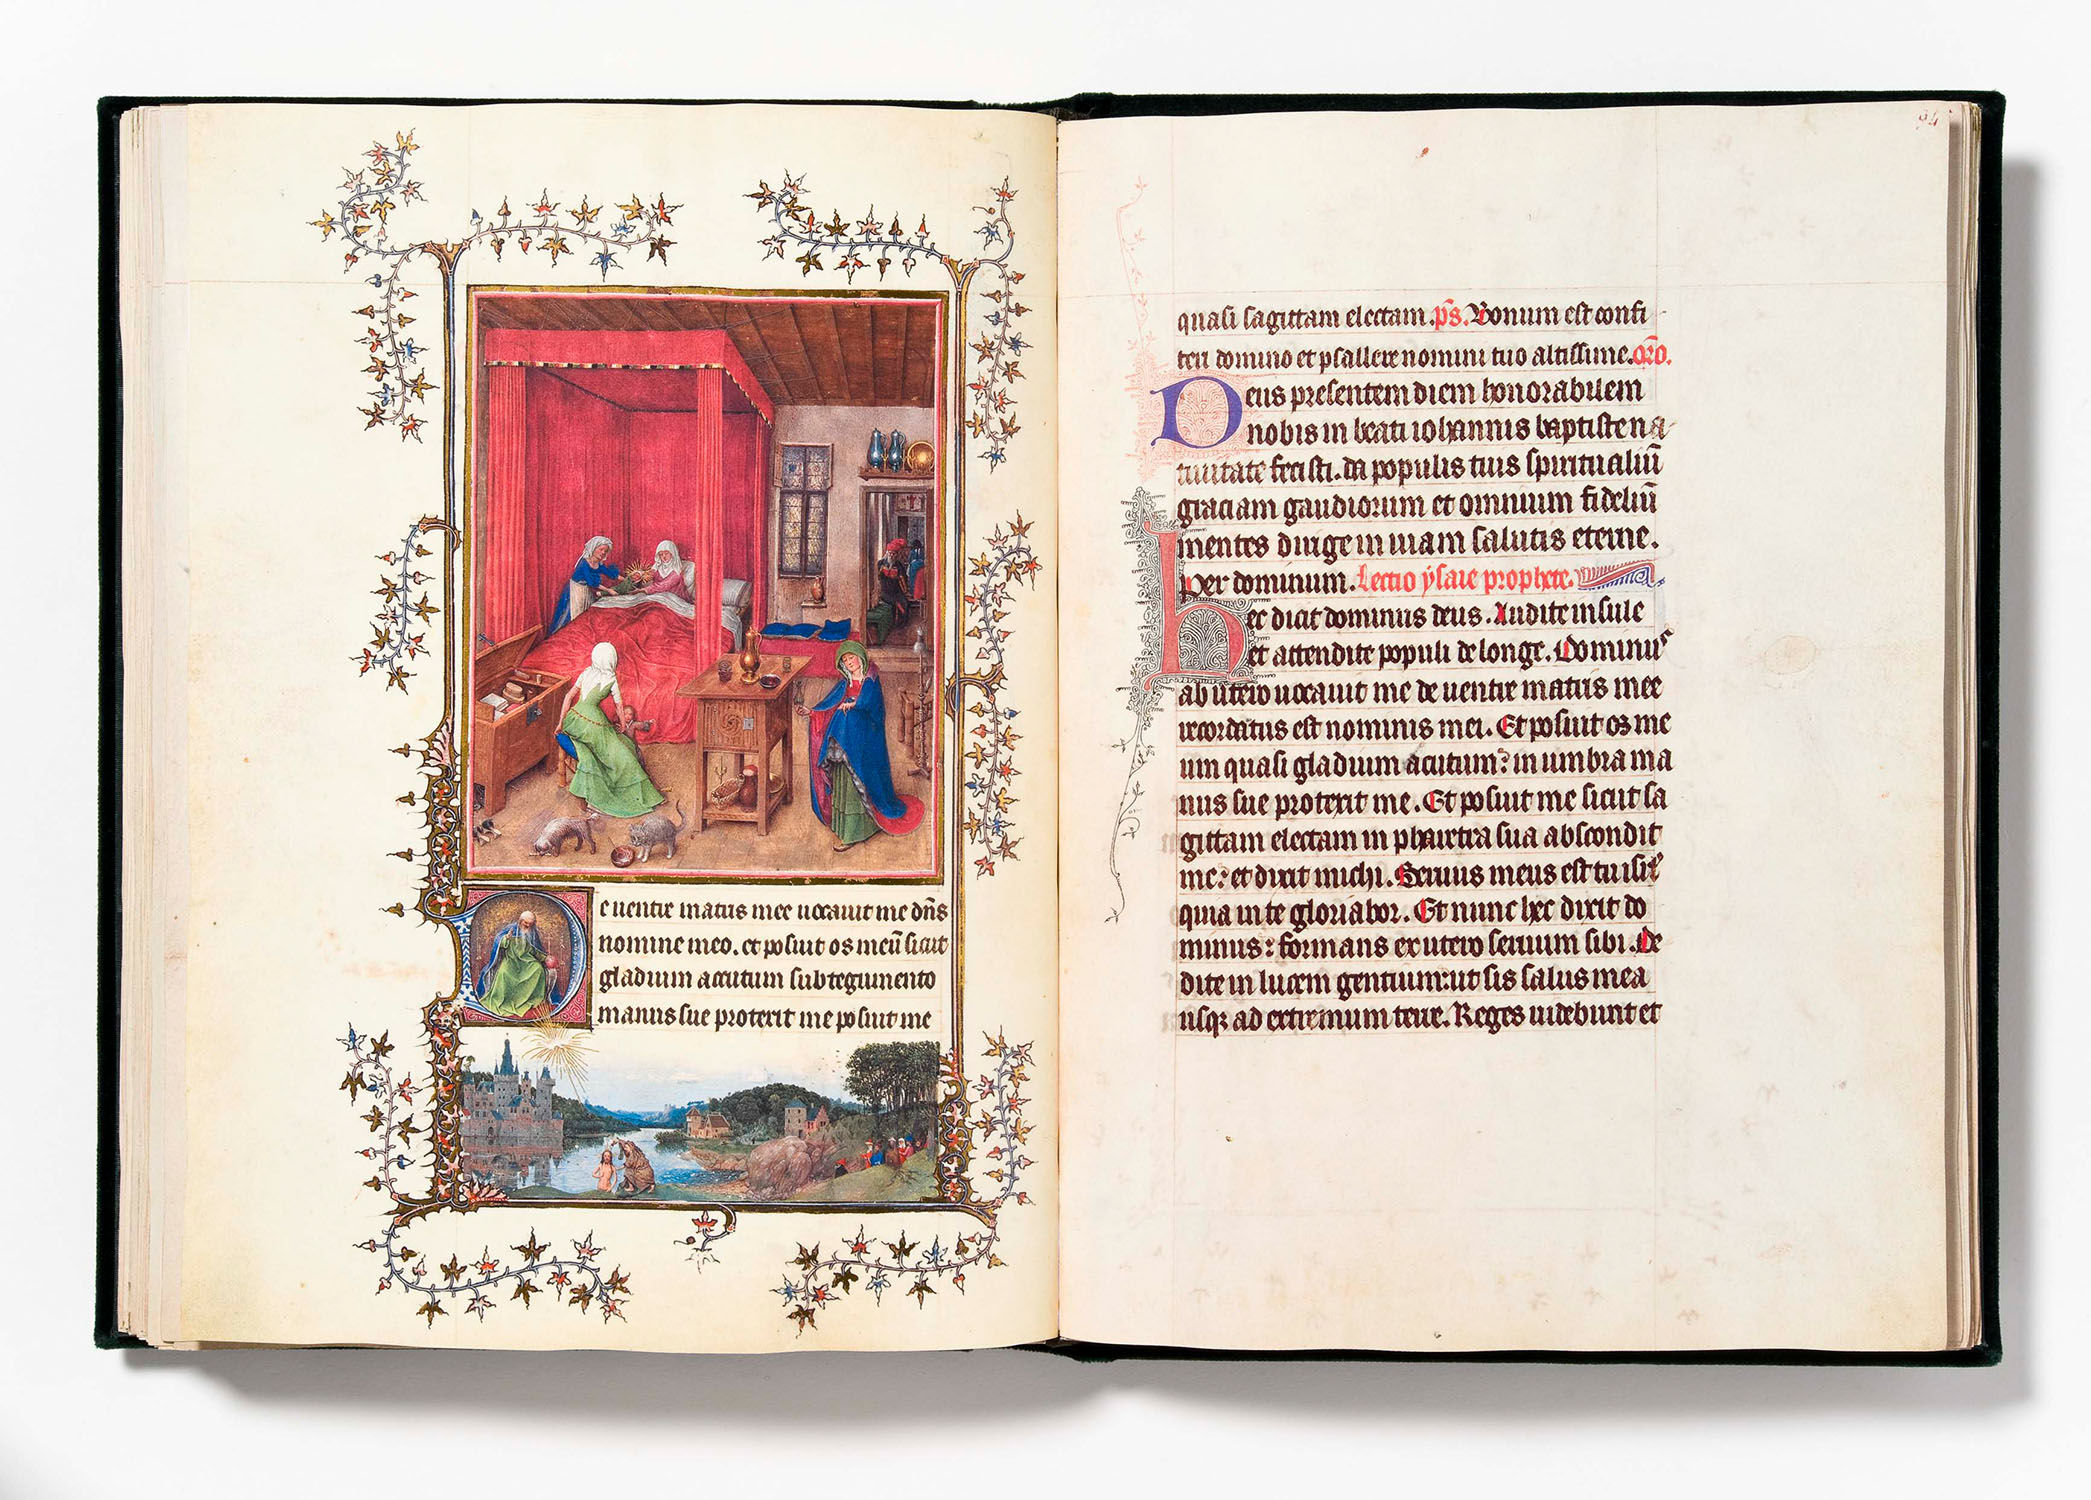 De ventre matris mee vocavit me dn̄s
nomine meo. et posuit os meū sicut
gladium acutum subtegumento
manus sue protexit me posuit me
94
quasi sagittam electam. ps̄. Bonum est confi
teri domino et psallere nomini tuo altissime. or̄o.
Deus presentem diem honorabilem
nobis in beati iohannis baptiste na-
tivitate fecisti. da populis tuis spiritualiū
graciam gaudiorum et omnium fideliū
mentes dirige in viam salutis eterne.
Per dominum. Lectio ysaie prophete.
Hec dicit dominus deus. Audite insule
et attendite populi de longe. Dominus
ab utero vocavit me de ventre matris mee
recordatus est nominis mei. Et posuit os me
um quasi gladium acutum: in umbra ma
nus sue protexit me. Et posuit me sicut sa
gittam electam in pharetra sua abscondit
me: et dixit michi. Servus meus est tu isrl̄
quia in te gloriabor. Et nunc hec dixit do
minus: formans ex utero servum sibi. De
di te in lucem gentium: ut sis salus mea
usqz ad extremum terre. Reges videbunt et